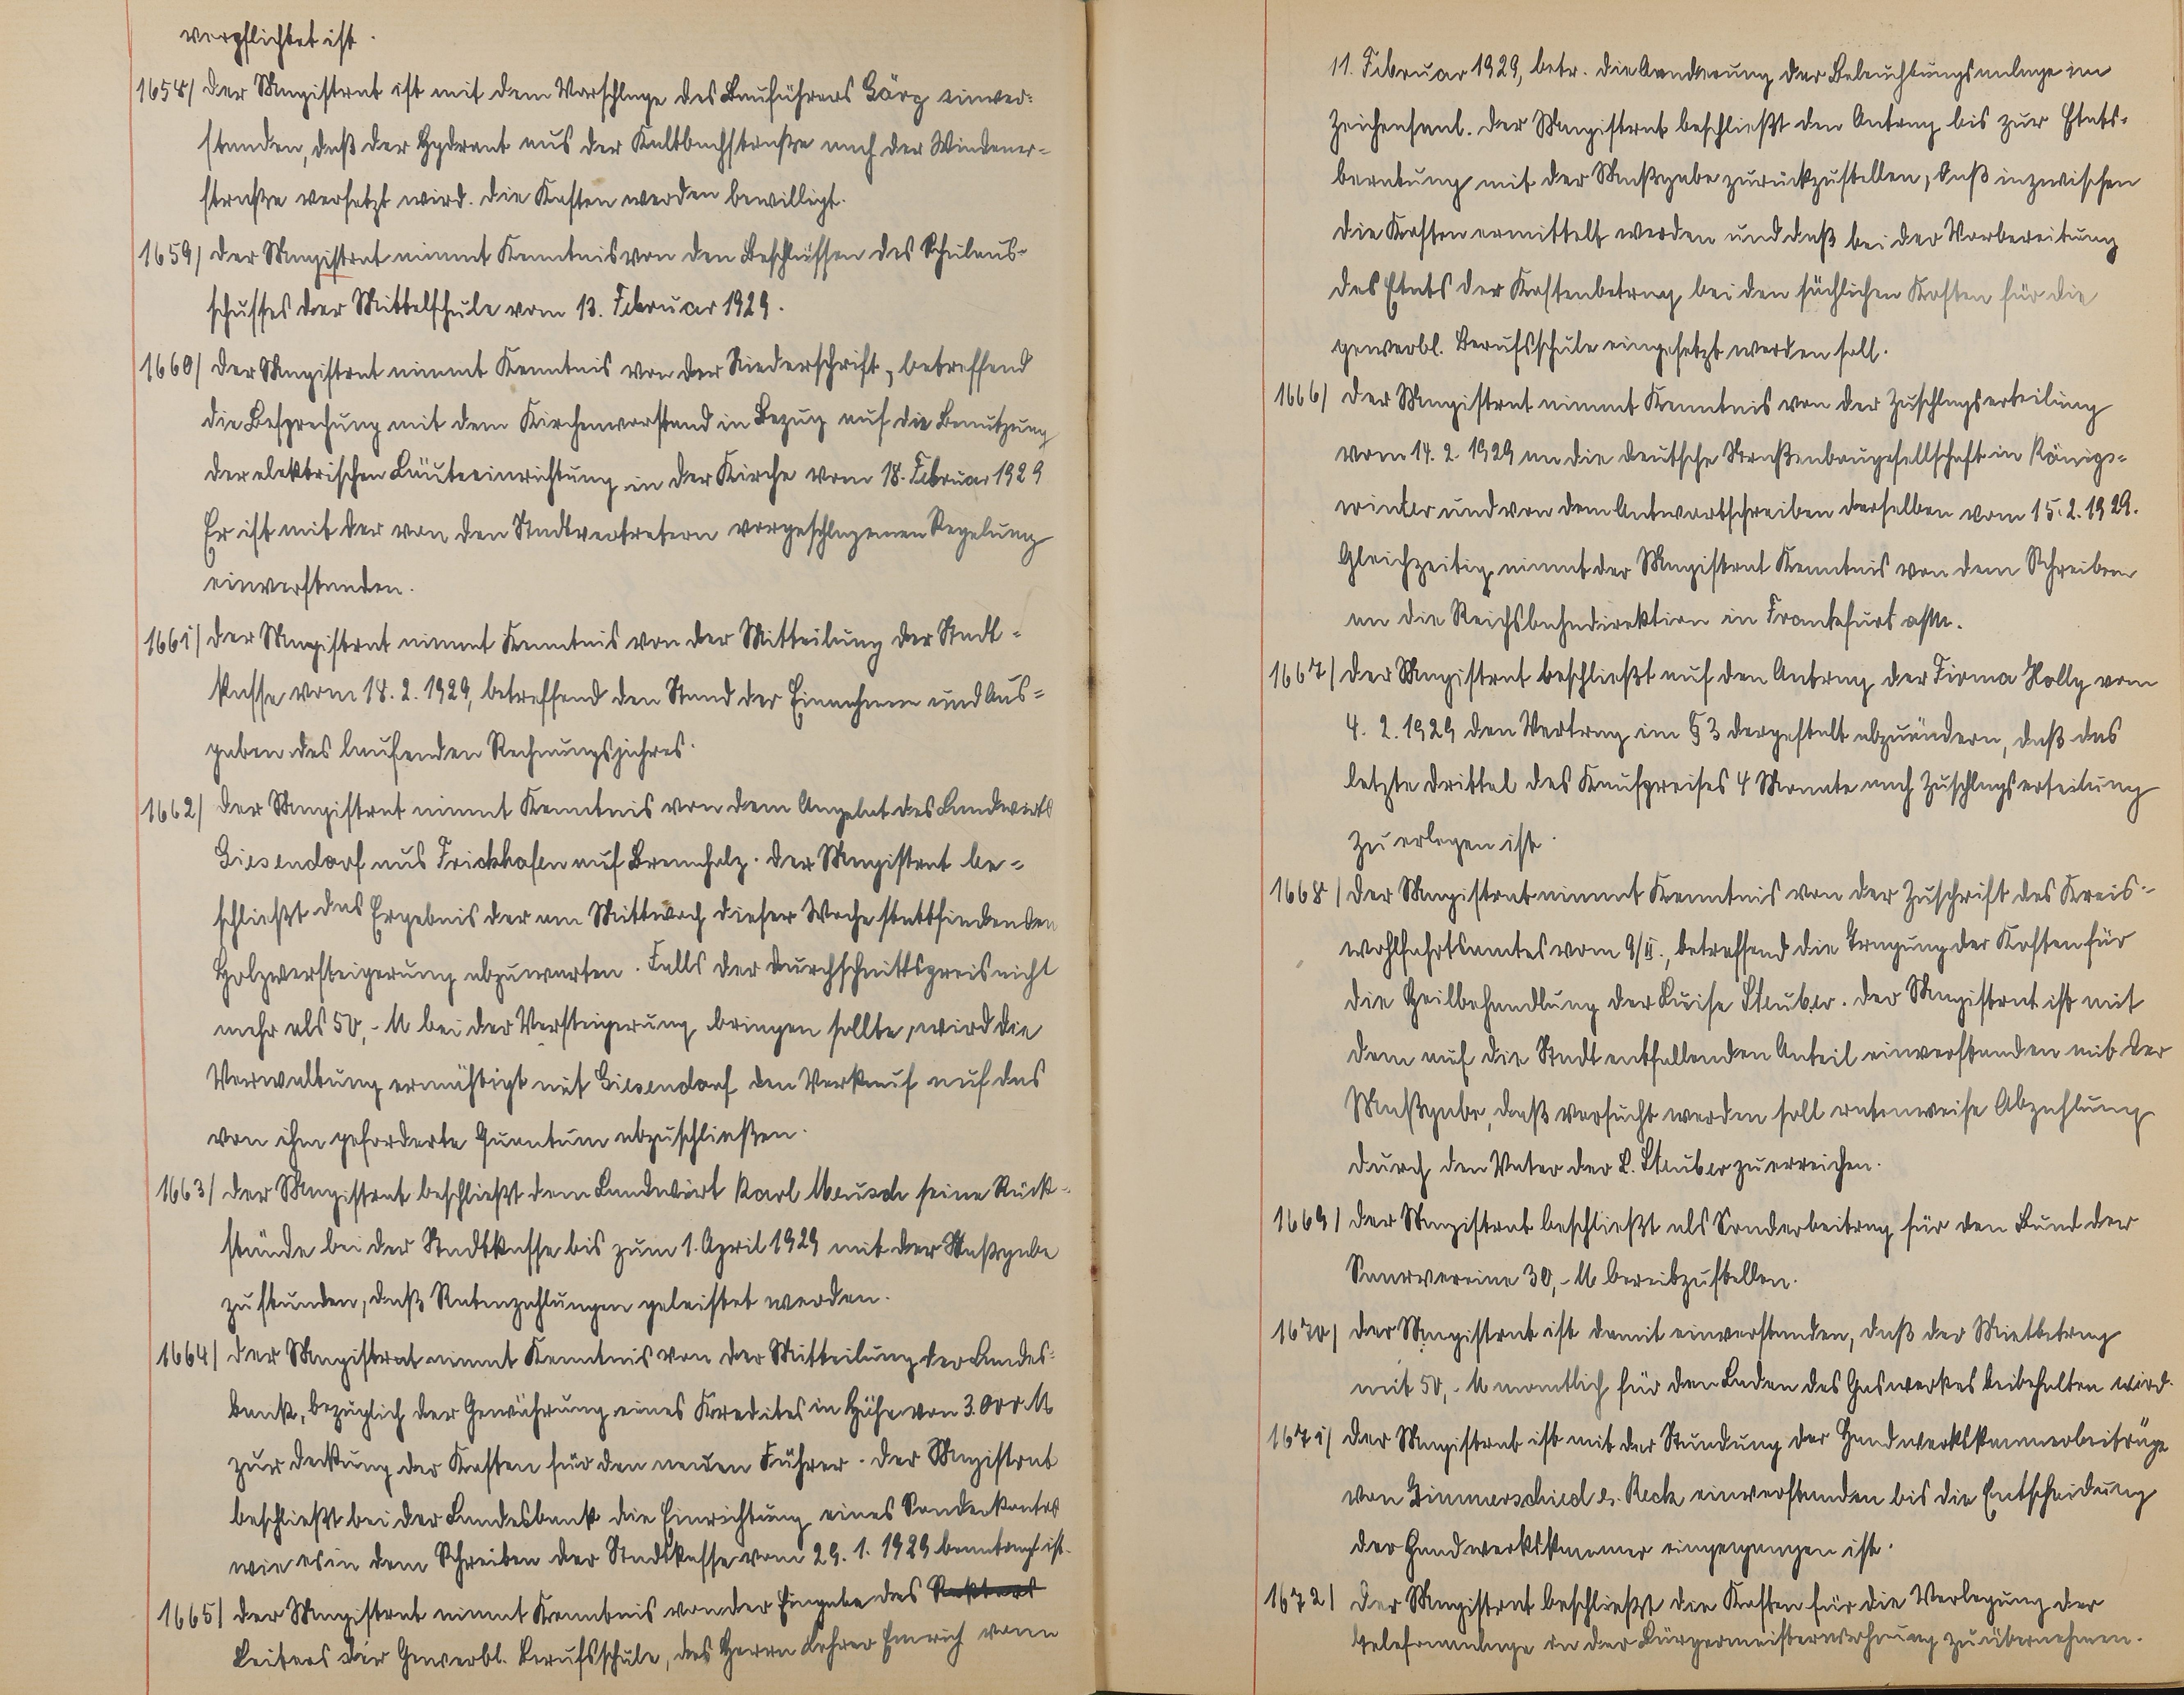 verpflichtet ist.
1658/ Der Magistrat ist mit dem Vorschlage des Bauführers Görg einver-
standen, daß der Hydrant aus der Kaltbachstraße nach der Windener-
straße versetzt wird. Die Kosten werden bewilligt.
1659/ Der Magistrat nimmt Kenntnis von den Beschlüssen des Schulaus-
schusses der Mittelschule vom 13. Februar 1929.
1660/ Der Magistrat nimmt Kenntnis von der Niederschrift, betreffend
die Besprechung mit dem Kirchenvorstand in Bezug auf die Benutzung
der elektrischen Läuteeinrichtung in der Kirche vom 18. Februar 1929
Er ist mit der von den Stadtvertretern vorgeschlagenen Regelung
einverstanden.
1661/ Der Magistrat nimmt Kenntnis von der Mitteilung der Stadt-
kasse vom 18. 2. 1929, betreffend den Stand der Einnahmen und Aus-
gaben des laufenden Rechnungsjahres.
1662/ Der Magistrat nimmt Kenntnis von dem Angebot des Landwirts
Giesendorf aus Frickhofen auf Brennholz. Der Magistrat be-
schließt das Ergebnis der am Mittwoch dieser Woche stattfindenden
Holzversteigerung abzuwarten. Falls der Durchschnittspreis nicht
mehr als 50,- M bei der Versteigerung bringen sollte, wird die
Verwaltung ermächtigt mit Giesendorf den Verkauf auf das
von ihm geforderte Quantum abzuschließen.
1663/ Der Magistrat beschließt dem Landwirt Karl Meusch seine Rück-
stände bei der Stadtkasse bis zum 1. April 1929 mit der Maßgabe
zu stunden, daß Ratenzahlungen geleistet werden.
1664/ Der Magistrat nimmt Kenntnis von der Mitteilung der Landes-
bank, bezüglich der Gewährung eines Kredites in Höhe von 3.000 M
zur Deckung der Kosten für den neuen Führer. Der Magistrat
beschließt bei der Landesbank die Einrichtung eines Sonderkontos
wie es in dem Schreiben der Stadtkasse vom 29. 1. 1929 beantragt ist.
1665/ Der Magistrat nimmt Kenntnis von der Eingabe des Rektors
Leiters der Gewerbl. Berufsschule, des Herrn Lehrer Emrich vom
11. Februar 1929, betr. die Aenderung der Beleuchtungsanlage im
Zeichensaal. Der Magistrat beschließt den Antrag bis zur Etats-
beratung mit der Maßgabe zurückzustellen, daß inzwischen
die Kosten ermittelt werden und daß bei der Vorbereitung
des Etats der Kostenbetrag bei den sächlichen Kosten für die
gewerbl. Berufsschule eingesetzt werden soll.
1666/ Der Magistrat nimmt Kenntnis von der Zuschlagserteilung
vom 14. 2. 1929 an die Deutsche Straßenbaugesellschaft in Königs-
winter und von dem Antwortschreiben derselben vom 15. 2. 1929.
Gleichzeitig nimmt der Magistrat Kenntnis von dem Schreiben
an die Reichsbahndirektion in Frankfurt a/M.
1667/ Der Magistrat beschließt auf den Antrag der Firma Holly vom
4. 2. 1929 den Vertrag im § 3 dergestalt abzuändern, daß das
letzte Drittel des Kaufpreises 4 Monate nach Zuschlagserteilung
zu erlegen ist.
1668/ Der Magistrat nimmt Kenntnis von der Zuschrift des Kreis-
wohlfahrtsamtes vom 9/II., betreffend die Tragung der Kosten für
die Heilbehandlung der Luise Steuber. Der Magistrat ist mit
dem auf die Stadt entfallenden Anteil einverstanden mit der
Maßgabe, daß versucht werden soll ratenweise Abzahlung
durch den Vater der L. Steuber zu erreichen.
1669/ Der Magistrat beschließt als Sonderbeitrag für den Bund der
Saarvereine 30,- M bereitzustellen.
1670/ Der Magistrat ist damit einverstanden, daß der Mietbetrag
mit 50,- M monatlich für den Laden des Gaswerkes beibehalten wird.
1671/ Der Magistrat ist mit der Stundung der Handwerkskammerbeiträge
von Zimmerschied &. Reck einverstanden bis die Entscheidung
der Handwerkskammer eingegangen ist.
1672/ Der Magistrat beschließt die Kosten für die Verlegung der
Telefonanlage in der Bürgermeisterwohnung zu übernehmen.